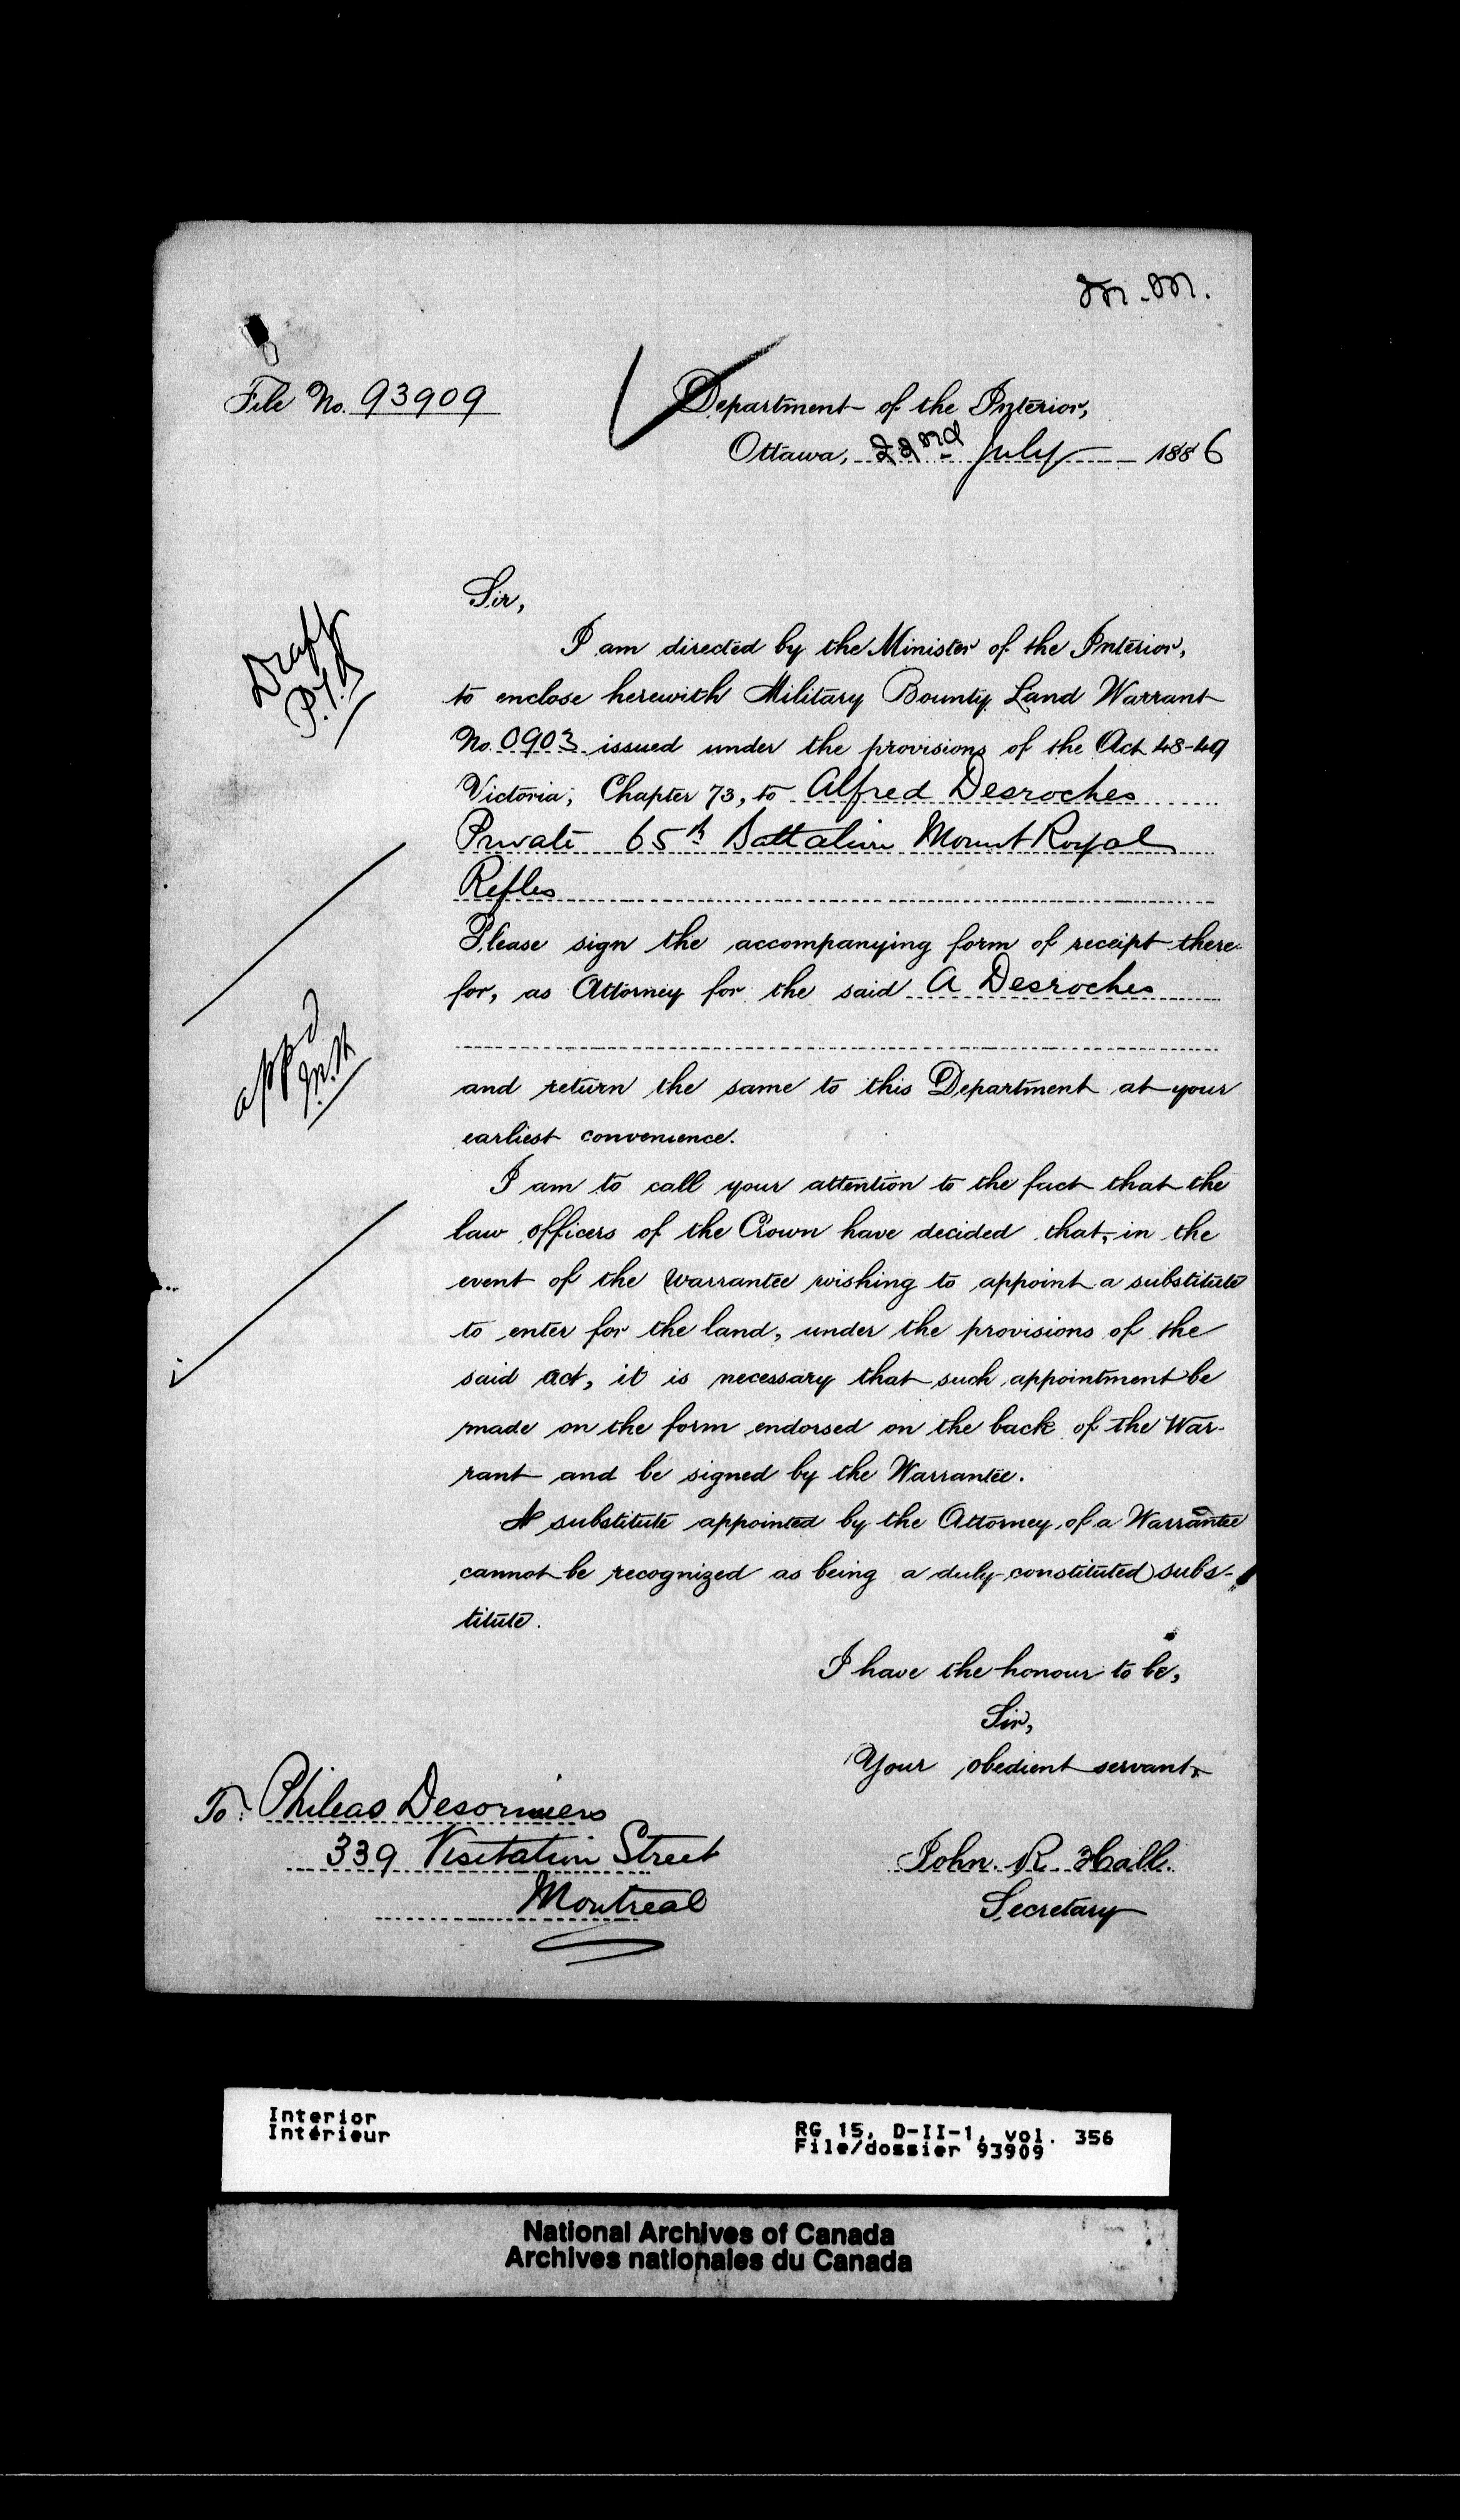 M.M.
File No. 93909
Department of the Interior,
Ottawa, 22nd July 1886
Sir,
Draft
I am directed by the Minister of the Interior,
to enclose herewith Military Bounty Land Warrant
No. 0903 issued under the provisions of the Act 48-49
Victoria, Chapter 73, to Alfred Desroches
Private 65th Battalion Mount Royal
Refles
Please sign the accompanying form of receipt there-
for, as Attorney for the said A Desroches
appd
and return the same to this Department at your
earliest convenience.
I am to call your attention to the fact that the
law officers of the Crown have decided that, in the
event of the Warrantee wishing to appoint a substitute
to enter for the land, under the provisions of the
said Act, it is necessary that such appointment be
made on the form endorsed on the back of the War-
rant and be signed by the Warrantee.
A substitute appointed by the Attorney of a Warrantee
cannot be recognized as being a duly constituted subs-
titute.
I have the honour to be,
Sir,
Your obedient servant,
To: Phileas Desormiers
339 Visitation Street
Montreal
John. R. Hall.
Secretary
Interior
Intérieur
RG 15, D-II-1, vol. 356
File/dossier 93909
National Archives of Canada
Archives nationales du Canada